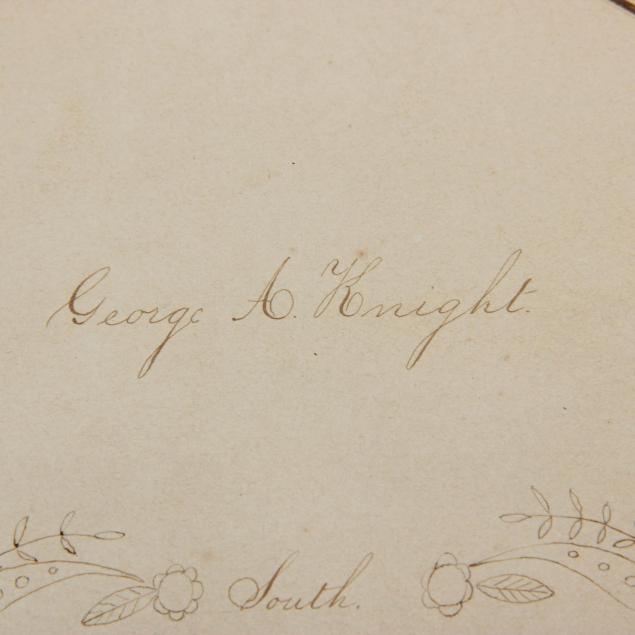 George A. Knight.
South.